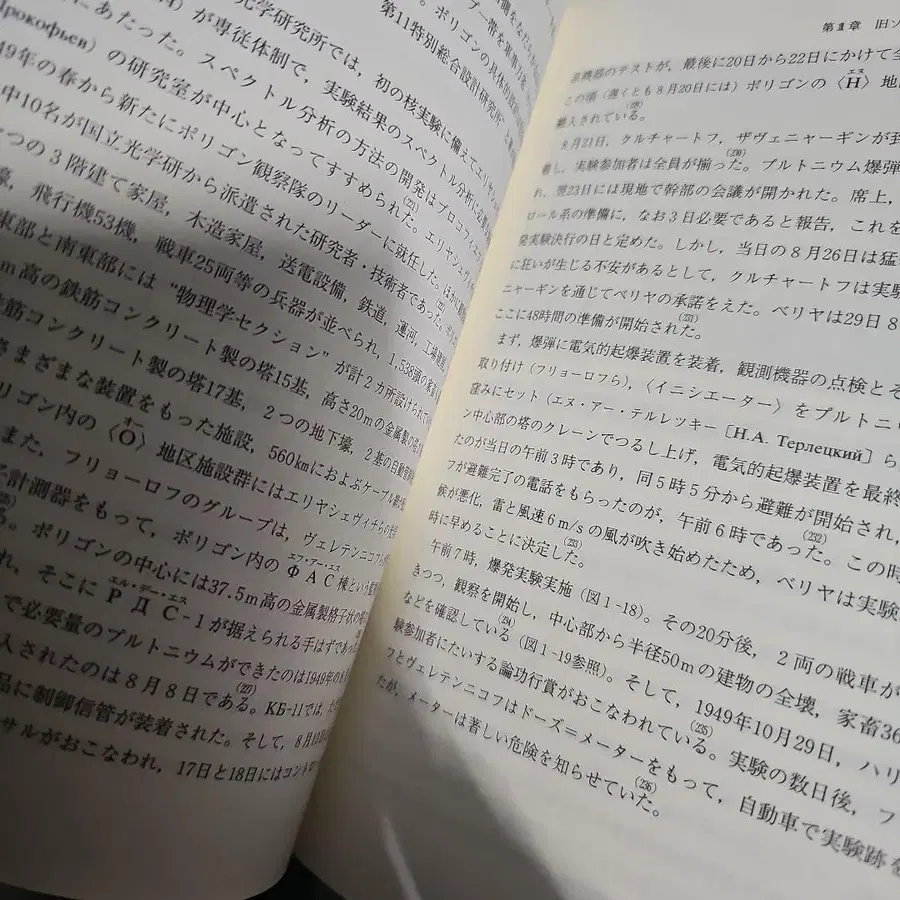 第11特別総合設計研究所"と
光学研究所では，初の核実験に備えてエリヤシ
が専従体制で，実験結果のスペクトル分析に
にあたった。スペクトル分析の方法の開発はプロコフィエ
Прокофьев）の研究室が中心となってすすめられた。エリヤシェヴィ
49年の春から新たにポリゴン観察隊のリーダーに就任した。
中10名が国立光学研から派遣された研究者・技術者であった。
つの３階建て家屋，木造家屋，送電設備，鉄道，運河，工場建
壕，飛行機53機，戦車25両等の兵器が並べられ，1,538頭の家畜
東部と南東部には“物理学セクション”が計２カ所設けられ
m高の鉄筋コンクリート製の塔15基，高さ20mの金属製の塔
筋コンクリート製の塔17基，２つの地下壕，２基の自動
さまざまな装置をもった施設，560kmにおよぶケーブル
リゴン内の〈О〉地区施設群にはエリヤシェヴィチらの
また，フリョーロフのグループは，ヴェレテンニコフ
計測器をもって，ポリゴン内のФАС棟という
る。ポリゴンの中心には37.5m高の金属製格子状の
れ，そこにРДС-1が据えられる手はずであった
で必要量のプルトニウムができたのは1949年の
入されたのは８月８日である。КБ-11では，
品に制御信管が装着された。そして，８月10
サルがおこなわれ，17日と18日にはコントロ
第１章　旧ソ
系機器のテストが，最後に20日から22日にかけて全
この頃（遅くとも８月20日には）ポリゴンの〈Н〉地
搬入されている。
８月21日，クルチャートフ，ザヴェニャーギンが到
着し，実験参加者は全員が揃った。プルトニウム爆弾
れ，翌23日には現地で幹部の会議が開かれた。席上，
ロール系の準備に，なお３日必要であると報告，これを
発実験決行の日と定めた。しかし，当日の８月26日は猛
に狂いが生じる不安があるとして，クルチャートフは実験
ニャーギンを通じてベリヤの承諾をえた。ベリヤは29日８
ここに48時間の準備が開始された。
まず，爆弾に電気的起爆装置を装着，観測機器の点検とそ
取り付け（フリョーロフら），〈イニシエーター〉をプルトニ
窪みにセット（エヌ・アー・テルレツキー［Н.А. Терлецкий］ら
ン中心部の塔のクレーンでつるし上げ，電気的起爆装置を最終
たのが当日の午前３時であり，同５時５分から避難が開始され，
フが避難完了の電話をもらったのが，午前６時であった。この時
候が悪化，雷と風速６m/sの風が吹き始めたため，ベリヤは実験
時に早めることに決定した。
午前７時，爆発実験実施（図1-18）。その20分後，２両の戦車が
きつつ，観察を開始し，中心部から半径50mの建物の全壊，家畜36
などを確認している（図1-19参照）。そして，1949年10月29日，ハリ
験参加者にたいする論功行賞がおこなわれている。実験の数日後，フ
フとヴェレテンニコフはドーズ＝メーターをもって，自動車で実験跡を
たが，メーターは著しい危険を知らせていた。